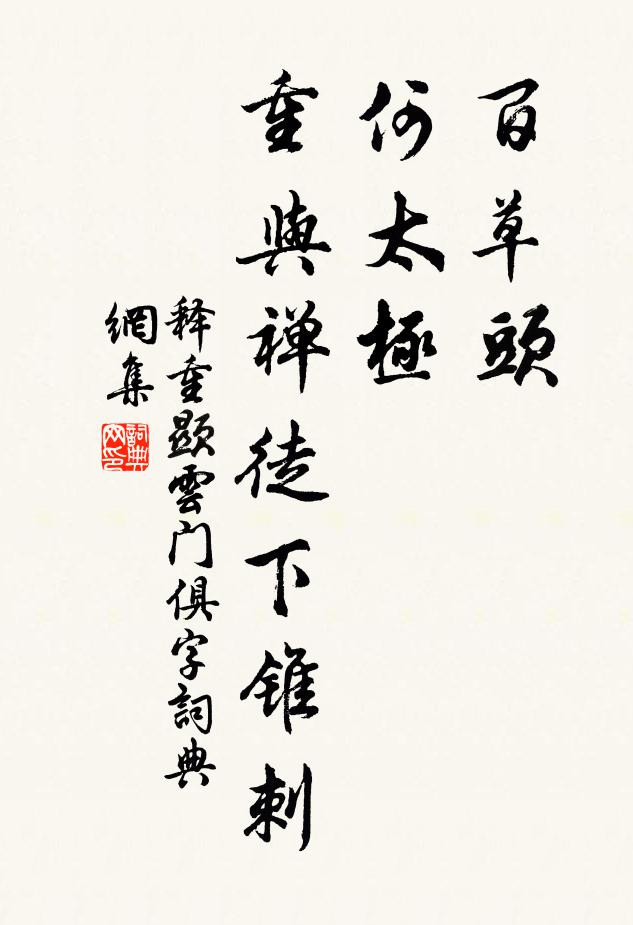 百草頭
何太極
重與禅徒下錐刺
释重顯雲门俱字詞典
網集
詞典
网印